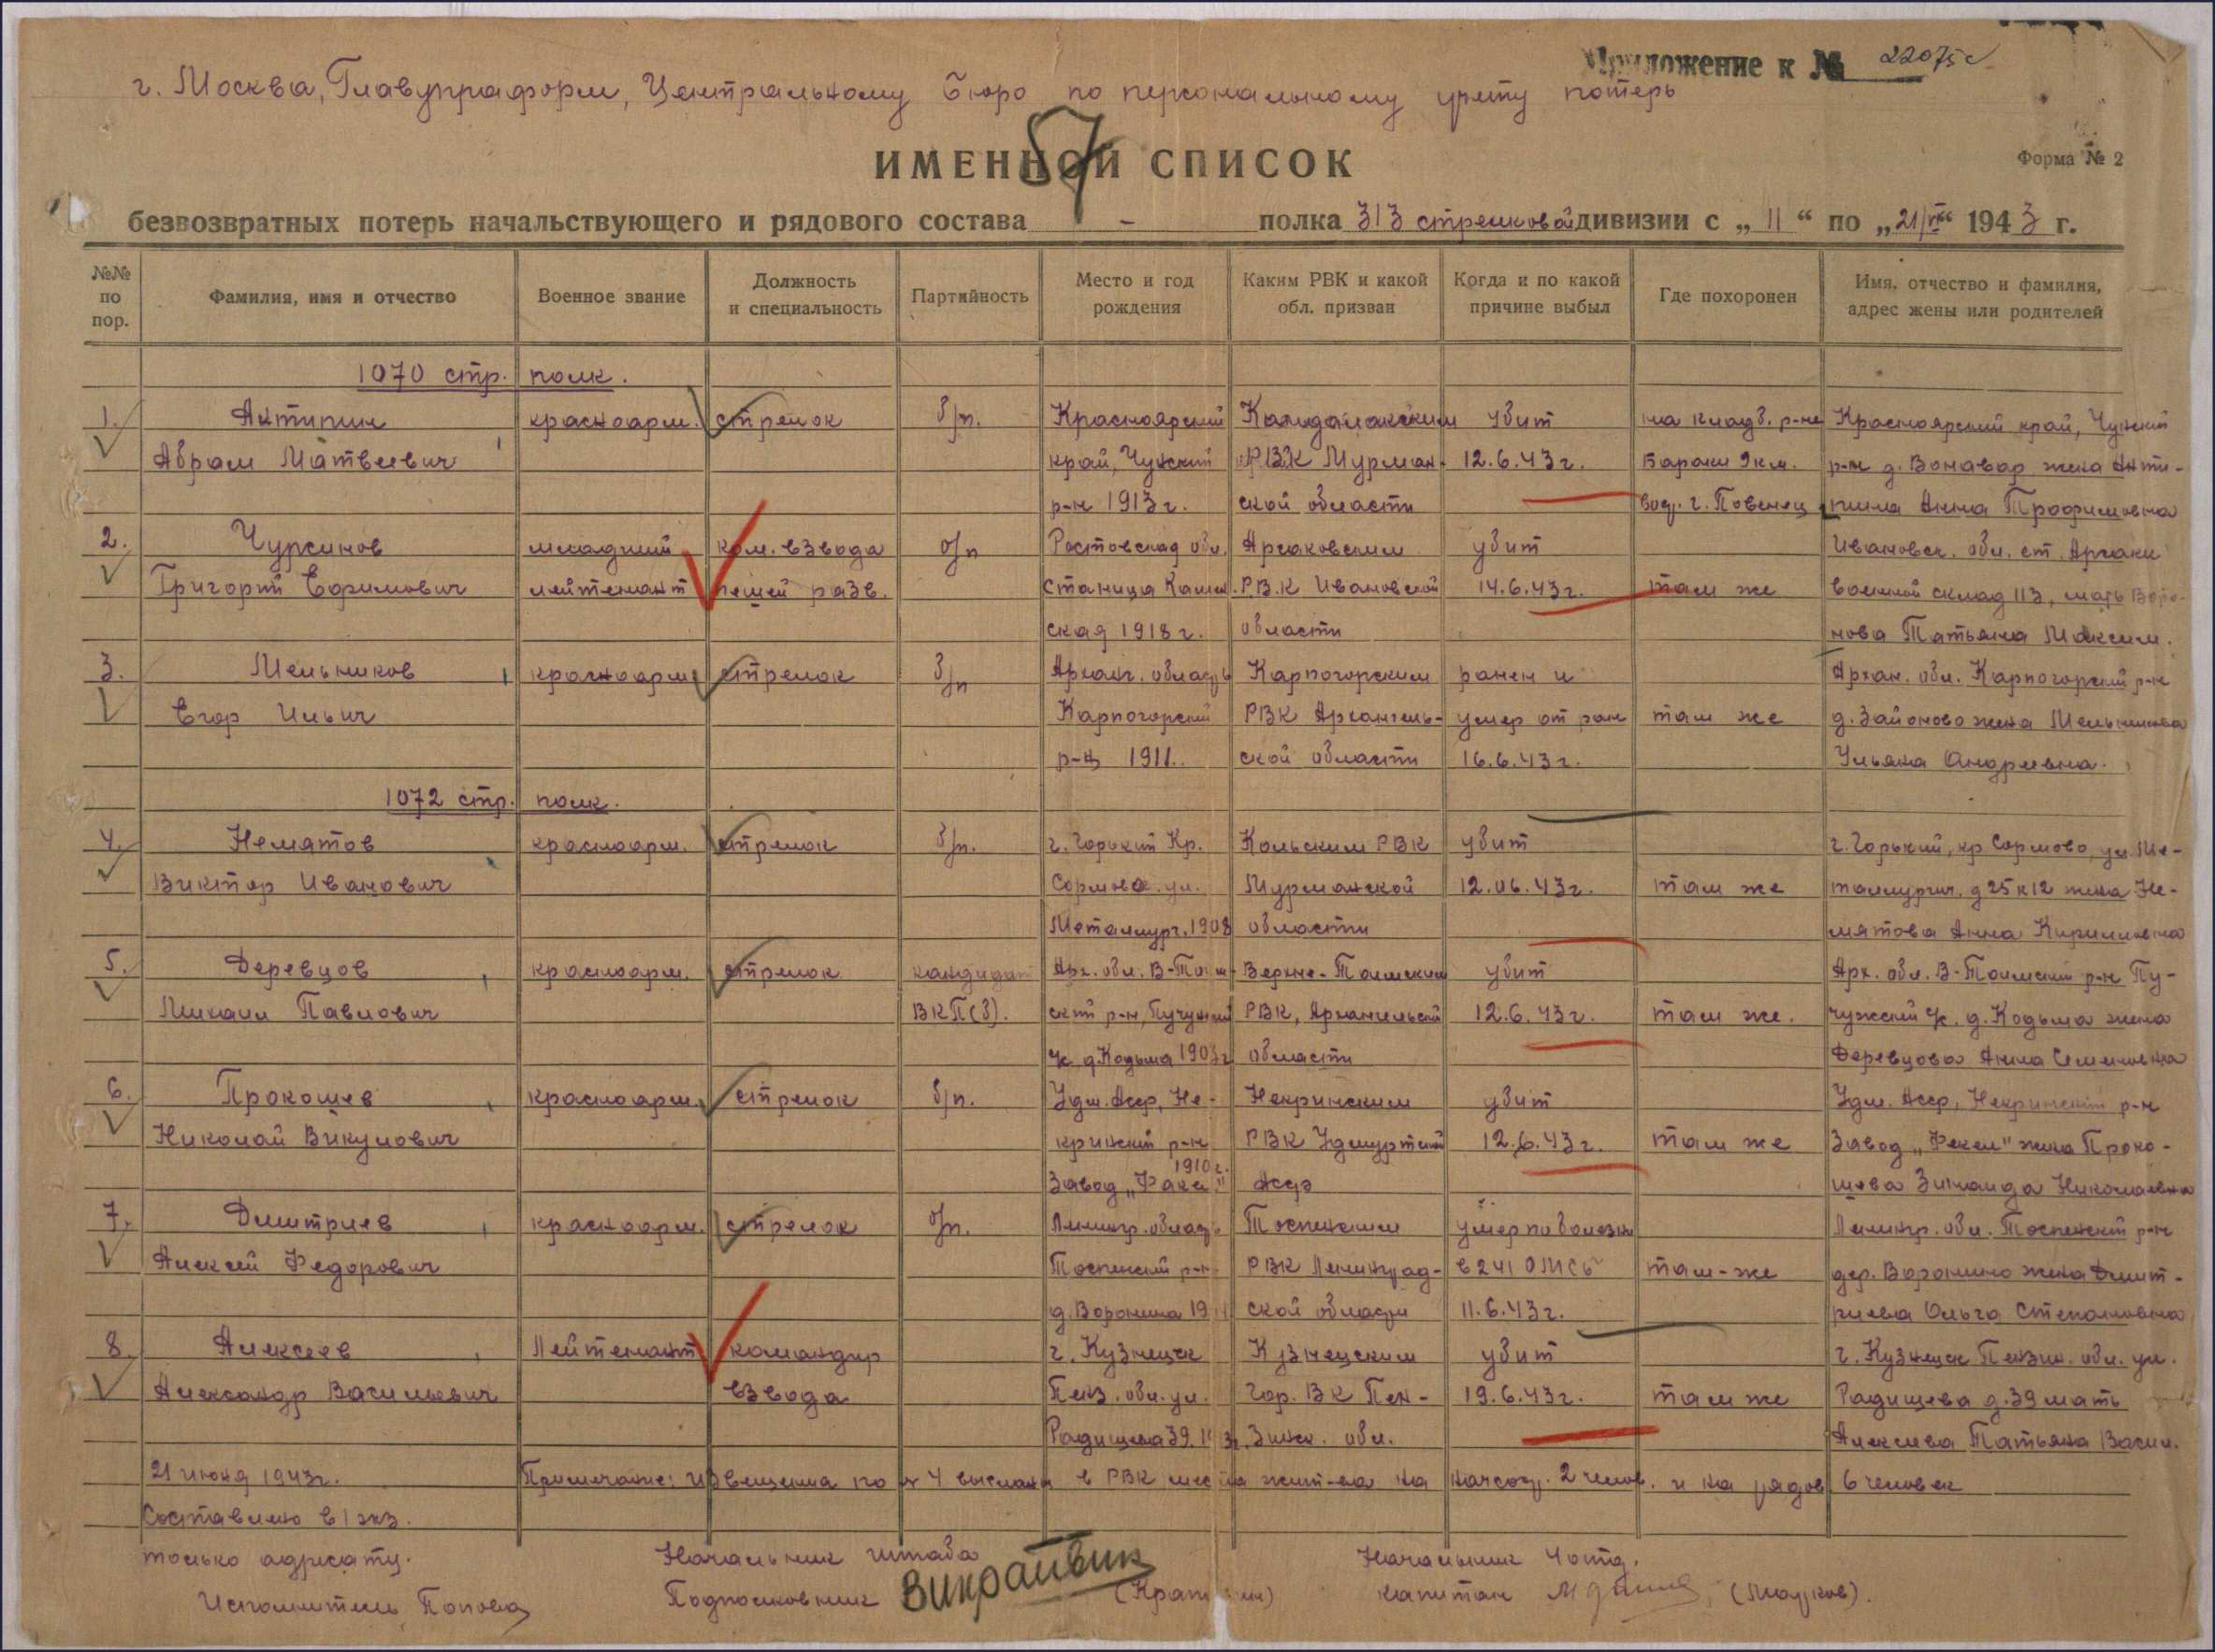 Приложение к № 22075с
г. Москва, Главупраформ, Центральному бюро по персональному учету потерь
57
ИМЕННОЙ СПИСОК
Форма № 2
безвозвратных потерь начальствующего и рядового состава - полка 313 стрелковой дивизии с „ 11 “ по „ 21/VI “ 1943 г.
№№ по пор. Фамилия, имя и отчество Военное звание Должность и специальность Партийность Место и год рождения Каким РВК и какой обл. призван Когда и по какой причине выбыл Где похоронен Имя, отчество и фамилия, адрес жены или родителей
1070 стр. полк.
1. Антипин красноарм. стрелок б/п. Красноярский Кандалакским убит на кладб. р-не Красноярский край, Чунский
Абрам Матвеевич край, Чунский РВК Мурман- 12.6.43г. Бараки 9км. р-н д. Вонавар жена Анти-
р-н 1913г. ской области вод. г. Повенец пина Анна Трофимовна
2. Чурсинов младший ком. взвода б/п Ростовская обл. Аркаковским убит Ивановск. обл. ст. Аркаки
Григорий Ефимович лейтенант пешей разв. станица Камен. РВК Ивановской 14.6.43г. там же военный склад 113, мать
ская 1918г. области нова Татьяна Максим.
3. Мельников красноарм. стрелок б/п Арханг. область Карпогорским ранен и Архан. обл. Карпогорский р-н
Егор Ильич Карпогорский РВК Архангель- умер от ран там же д. Зайоново жена Мельникова
р-н 1911. ской области 16.6.43г. Ульяна Андреевна.
1072 стр. полк.
4. Немятов красноарм. стрелок б/п. г. Горький Кр. Кольским РВК убит г. Горький, кр Сормово, ул. Ме-
Виктор Иванович Сормово. ул. Мурманской 12.06.43г. там же таллургич. д 25 к 12 жена Не-
Металлург. 1908 области мятова Анна Кирилловна
5. Деревцов красноарм. стрелок кандидат Арх. обл. В-Тоим- Верхне-Тоимским убит Арх. обл. В-Тоимский р-н Пу-
Михаил Павлович ВКП(б). ский р-н, Пучужский РВК, Архангельской 12.6.43г. там же. чужский с/с. д. Кодыма жена
с/с д. Кодыма 1903г области Деревцова Анна Семеновна
6. Прокошев красноарм. стрелок б/п. Удм. Асср, Не- Некринским убит Удм. Асср, Некринский р-н
Николай Викулович кринский р-н РВК Удмуртской 12.6.43г. там же Завод „Факел" жена Проко-
1910г.
Завод „Факел" Асср шева Зинаида Николаевна
7. Дмитриев красноарм. стрелок б/п. Ленингр. область Тосненским умер по болезни Ленингр. обл. Тосненский р-н
Алексей Федорович Тосненский р-н РВК Ленинград- в 241 ОМСБ там-же дер. Воронино жена Дмит-
д. Воронина 19 ской области 11.6.43г. риева Ольга Степановна
8. Алексеев Лейтенант командир г. Кузнецк Кузнецким убит г. Кузнецк Пензин. обл. ул.
Александр Васильевич взвода Пенз. обл. ул. Гор. ВК Пен- 19.6.43г. там же Радищева д. 39 мать
Радищева 39. зинск. обл. Алексеева Татьяна Васил.
21 июня 1943г. Примечание: Извещения по ф 4 высланы в РВК места жит-ва на начсост. 2 челов. и на рядов 6 человек
Составлено в 1 экз.
только адресату. Начальник штаба Начальник 4 отд.
Исполнитель Попова Подполковник капитан